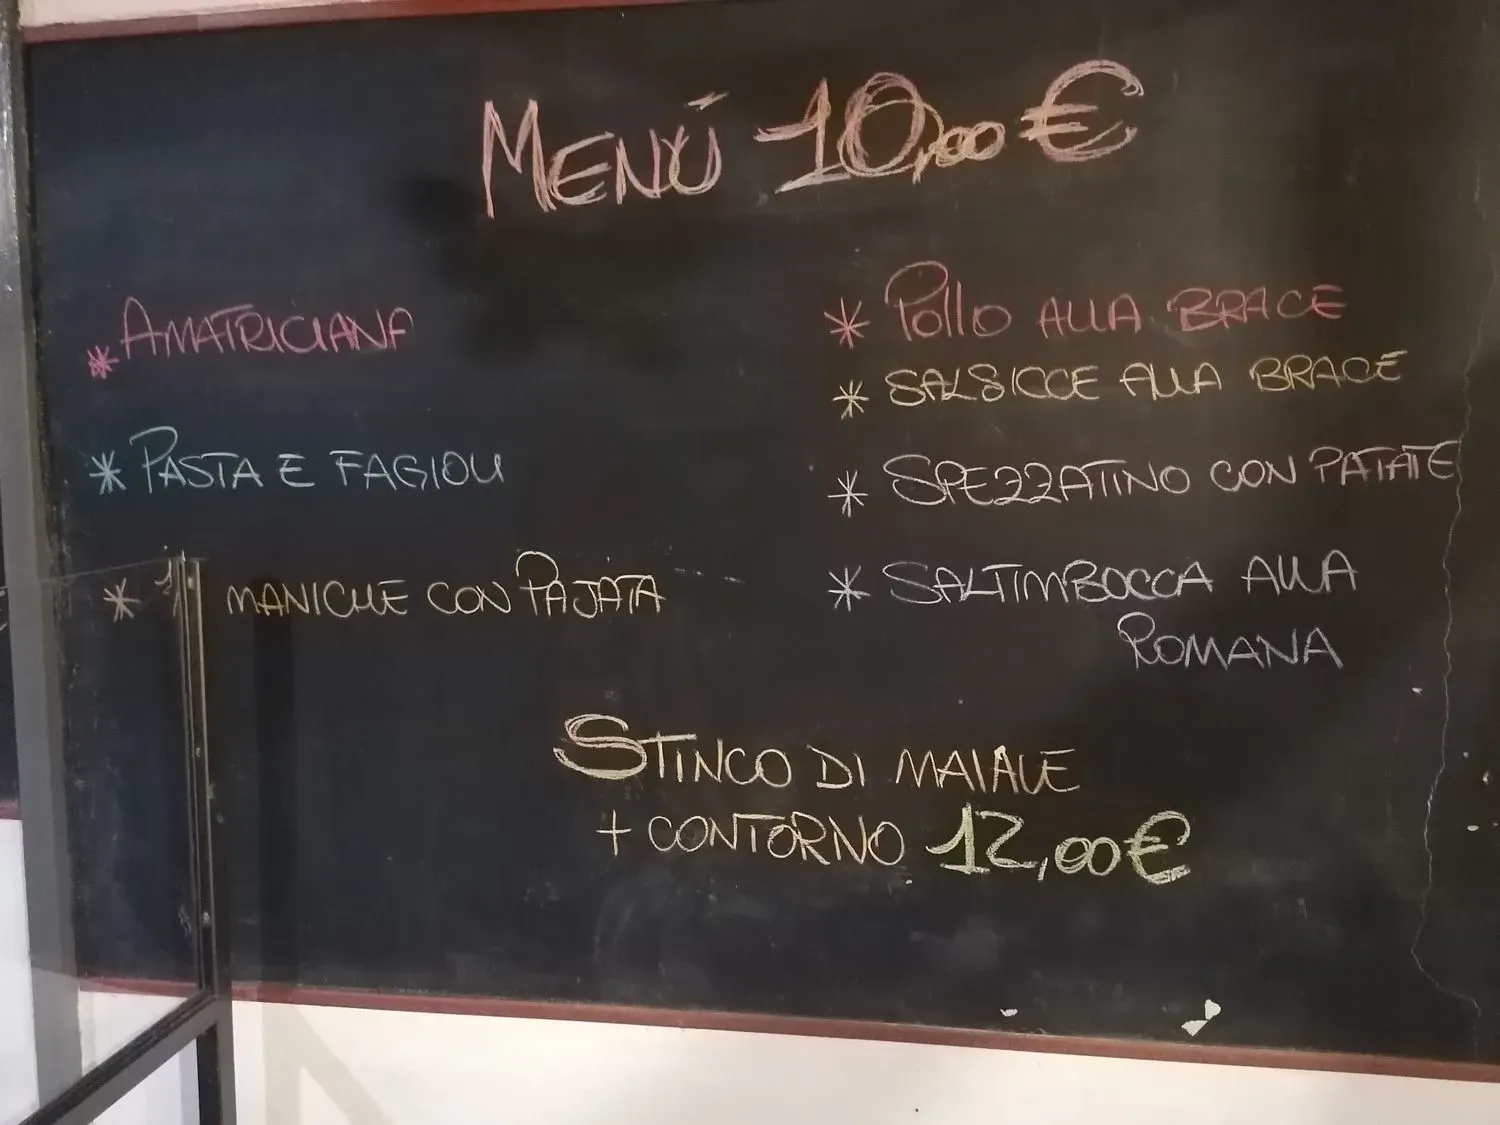 MENÚ 10,00 €
* AMATRICIANA
* PASTA E FAGIOLI
* 1/2 MANICHE CON PAJATA
* POLLO ALLA BRACE
* SALSICCE ALLA BRACE
* SPEZZATINO CON PATATE
* SALTIMBOCCA ALLA
ROMANA
STINCO DI MAIALE
+ CONTORNO 12,00 €